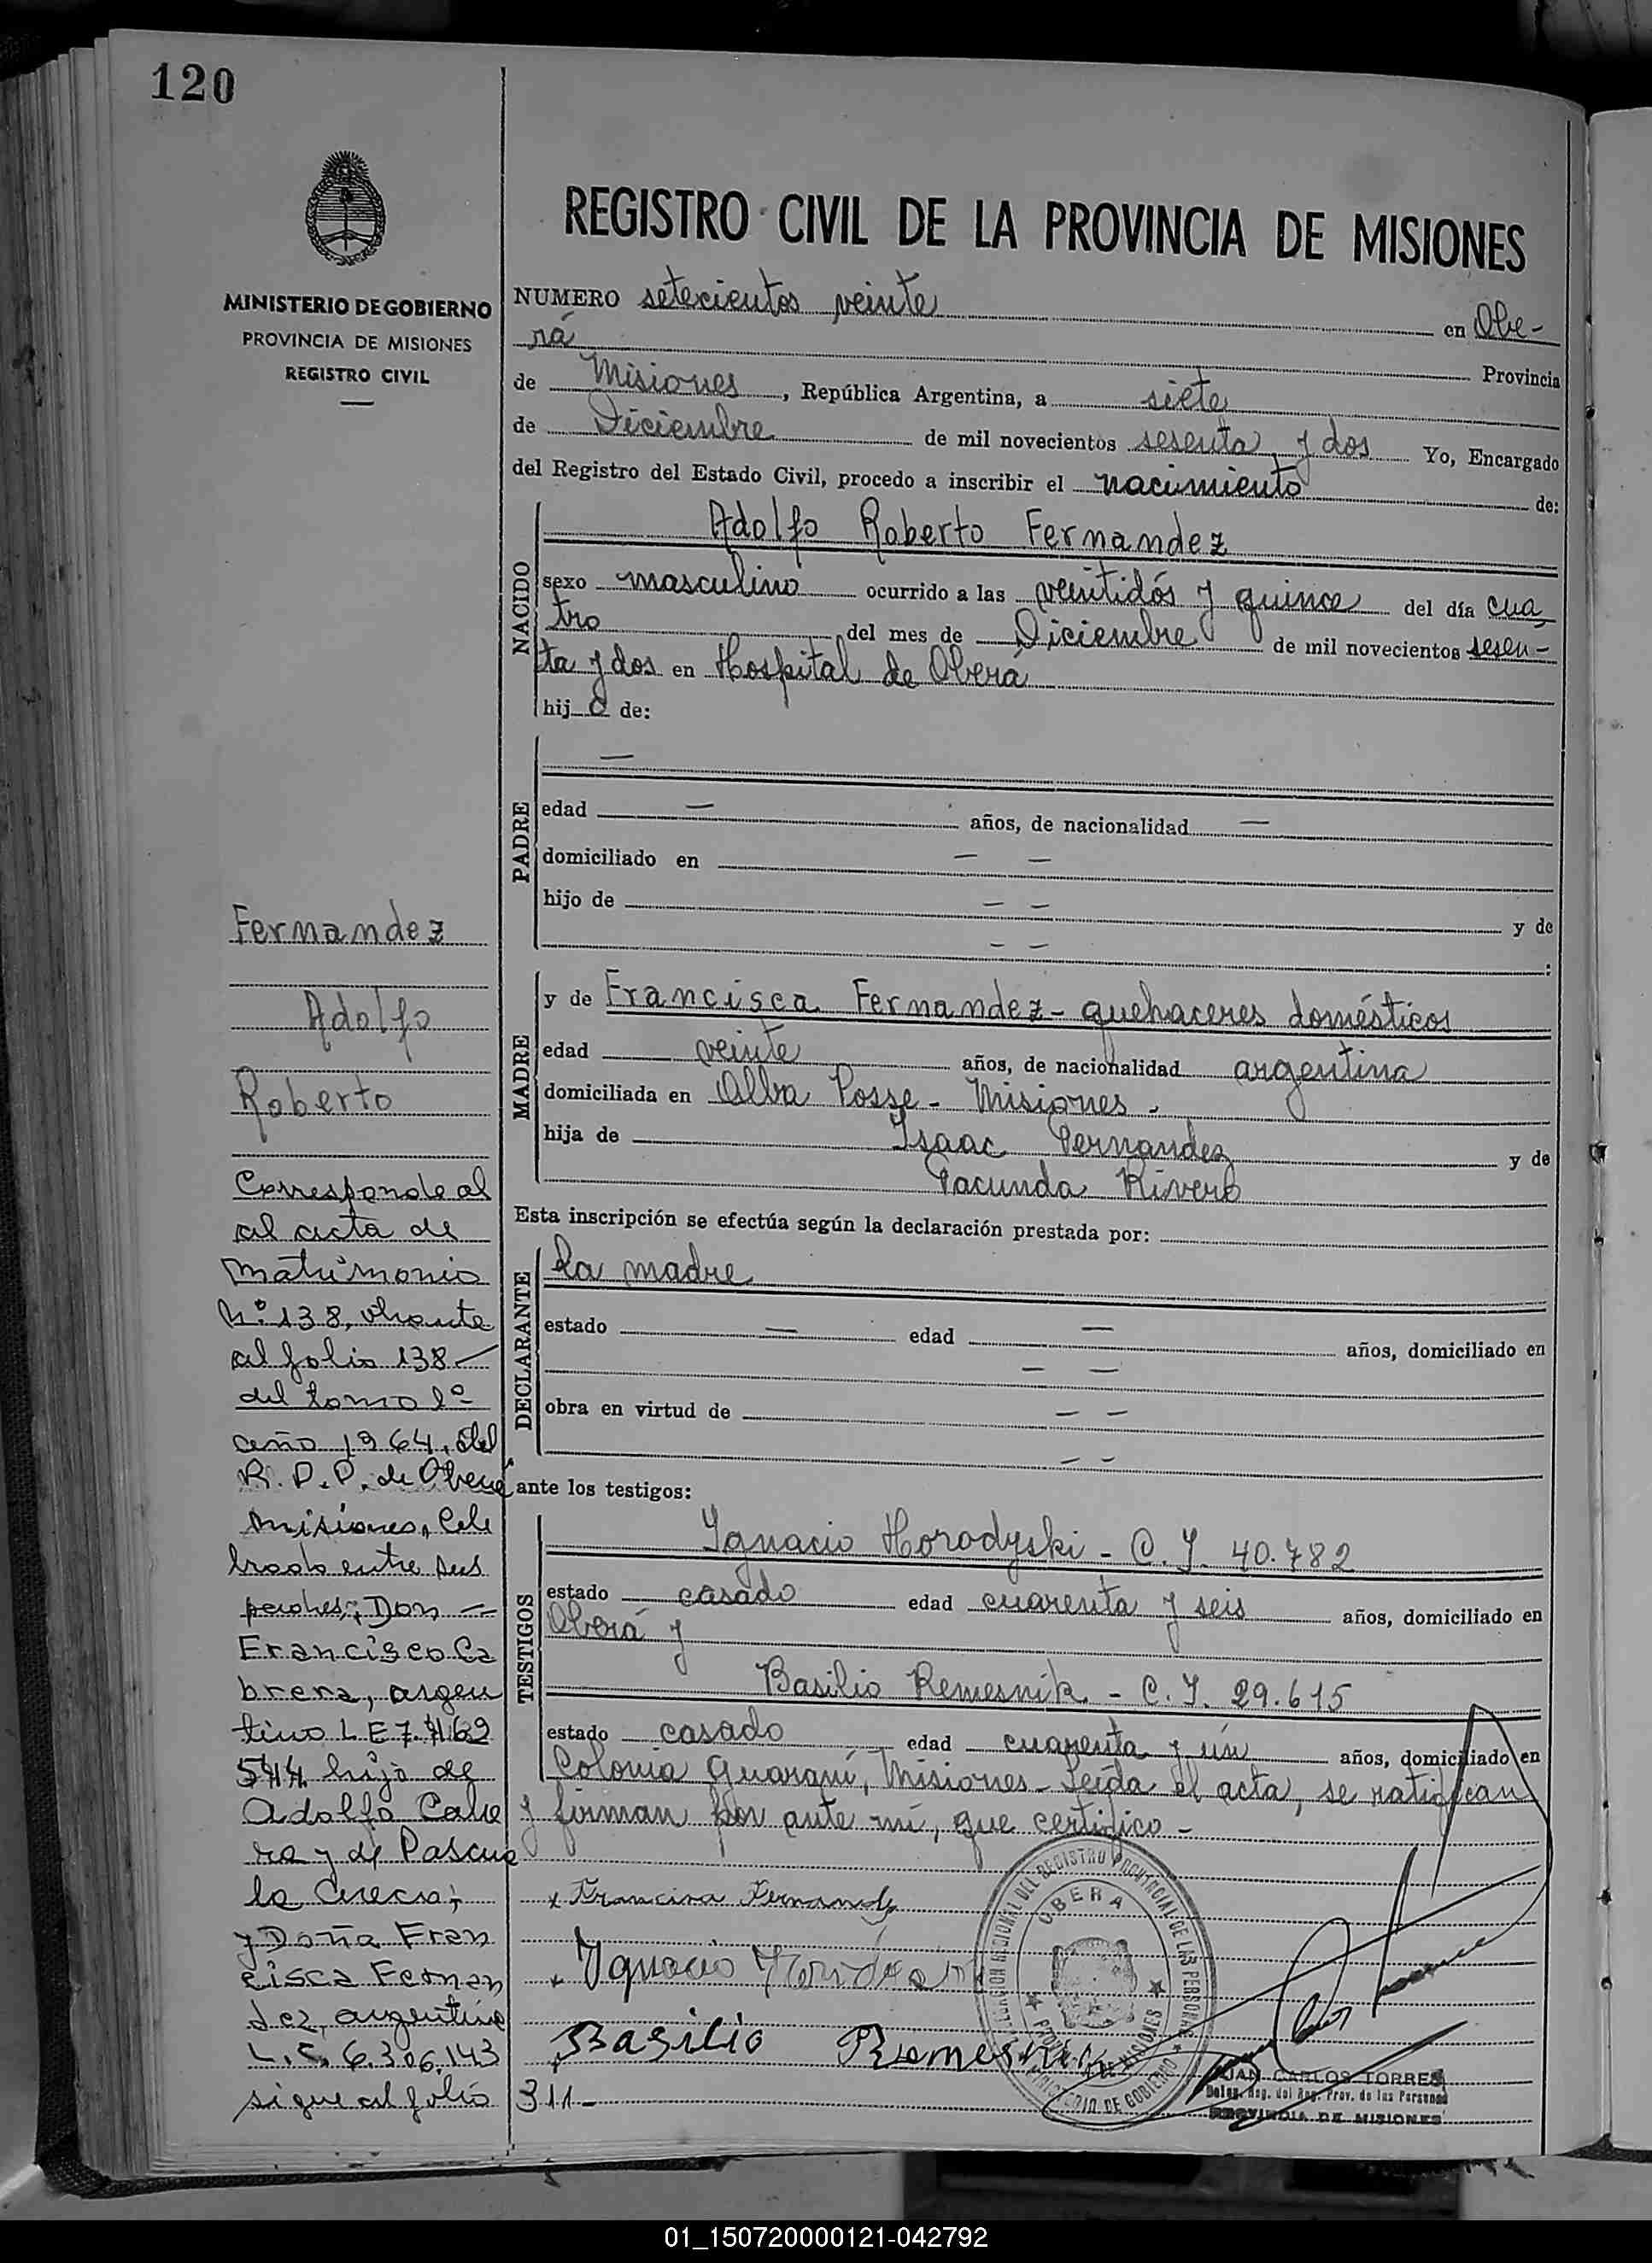 120
MINISTERIO DE GOBIERNO
PROVINCIA DE MISIONES
REGISTRO CIVIL
REGISTRO CIVIL DE LA PROVINCIA DE MISIONES
NUMERO setecientos veinte en Obe-
rá Provincia
de Misiones, República Argentina, a siete
de Diciembre de mil novecientos sesenta y dos Yo, Encargado
del Registro del Estado Civil, procedo a inscribir el nacimiento de:
NACIDO
Adolfo Roberto Fernandez
sexo masculino ocurrido a las veintidós y quince del día cua
tro del mes de Diciembre de mil novecientos sesen-
ta y dos en Hospital de Oberá
hij o de:
PADRE
—
edad — años, de nacionalidad —
domiciliado en — —
hijo de — — y de
— — :
MADRE
y de Francisca Fernandez - quehaceres domésticos
edad veinte años, de nacionalidad argentina
domiciliada en Alba Posse - Misiones.
hija de Isaac Fernandez y de
Facunda Rivero
Esta inscripción se efectúa según la declaración prestada por:
DECLARANTE
la madre
estado — edad — años, domiciliado en
— —
obra en virtud de — —
— —
ante los testigos:
TESTIGOS
Ignacio Horodyski - C.I. 40.782
estado casado edad cuarenta y seis años, domiciliado en
Oberá y
Basilio Remesnik - C.I. 29.615
estado casado edad cuarenta y un años, domiciliado en
Colonia Guaraní, Misiones - Leída el acta, se ratifican
y firman por ante mí, que certifico -
x Francisca Fernandz
x Ignacio
Basilio Remesnik
OBERA
JUAN CARLOS TORRES
Deleg. Reg. del Reg. Prov. de las Personas
PROVINCIA DE MISIONES
Fernandez
Adolfo
Roberto
Corresponde al
al acta de
matrimonio
Nº 138, obrante
al folio 138 —
del tomo 1º
año 1964, del
R.P.P. de Oberá
Misiones, Cele
brado entre sus
padres; Don —
Francisco Ca
brera, argen
tino L E 7.
544 hijo de
Adolfo Cabre
ra y de Pascua
la
y Doña Fran
cisca Fernan
dez, argentina
L.C. 6.306.143
sigue al folio 311 -
01_150720000121-042792